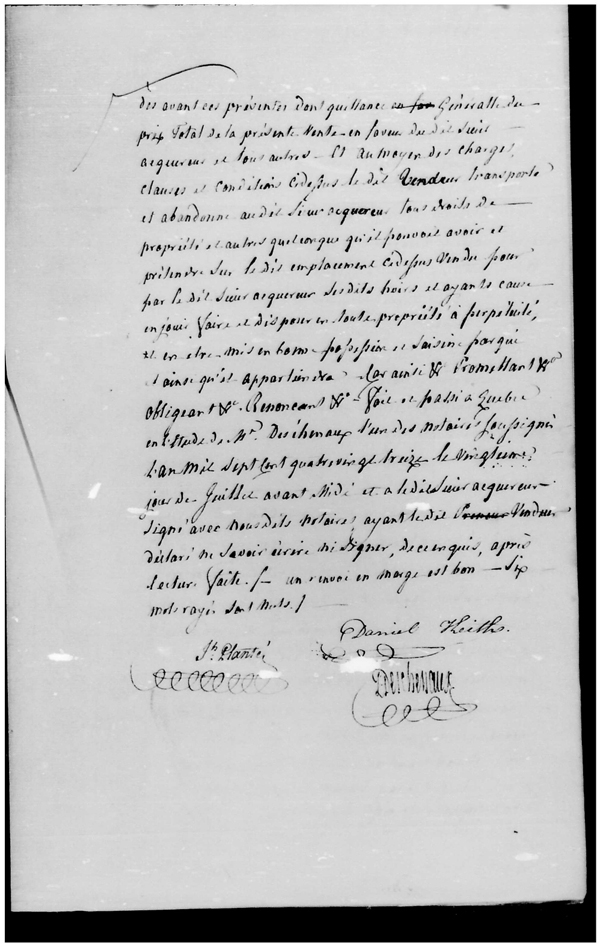 des avant ces présentes dont quittance en fav Génèralle du
prix Total de la présente Vente en faveur du dit Sieur
acquereur et tous autres - Et au moyen des charges,
clauses et conditions cidessus le dit Vendeur transporte
et abandonne au dit Sieur acquereur tous droits de
propriété et autres quelconque qu'il pouvoit avoir et
prétendre sur le dit emplacement cidessus vendu pour
par le dit Sieur acquereur sesdits hoirs et ayants cause
en jouir faire et disposer en toute propriété à perpétuité,
et en etre mis en bonne possession et saisine par qui
et ainsi qu'il appartiendra Car ainsi &c Promettant &ca
obligeant &c. Renoncant &c - Fait et passé à Quebec
en l'Etude de Mr. Deschenaux l'un des notaires soussignés
L'an Mil Sept Cent quatrevingt treize le Vingtieme
jour de Juillet avant Midi et a le dit Sieur acquereur
signé avec nousdits notaires, ayant le dit Preneur Vendeur
déclaré ne savoir écrire ni signer, de ce enquis, après
Lecture faite /- un renvoi en marge est bon - Six
mots rayés sont nuls. /
Daniel Keith.
Jh. Planté
Deschenaux